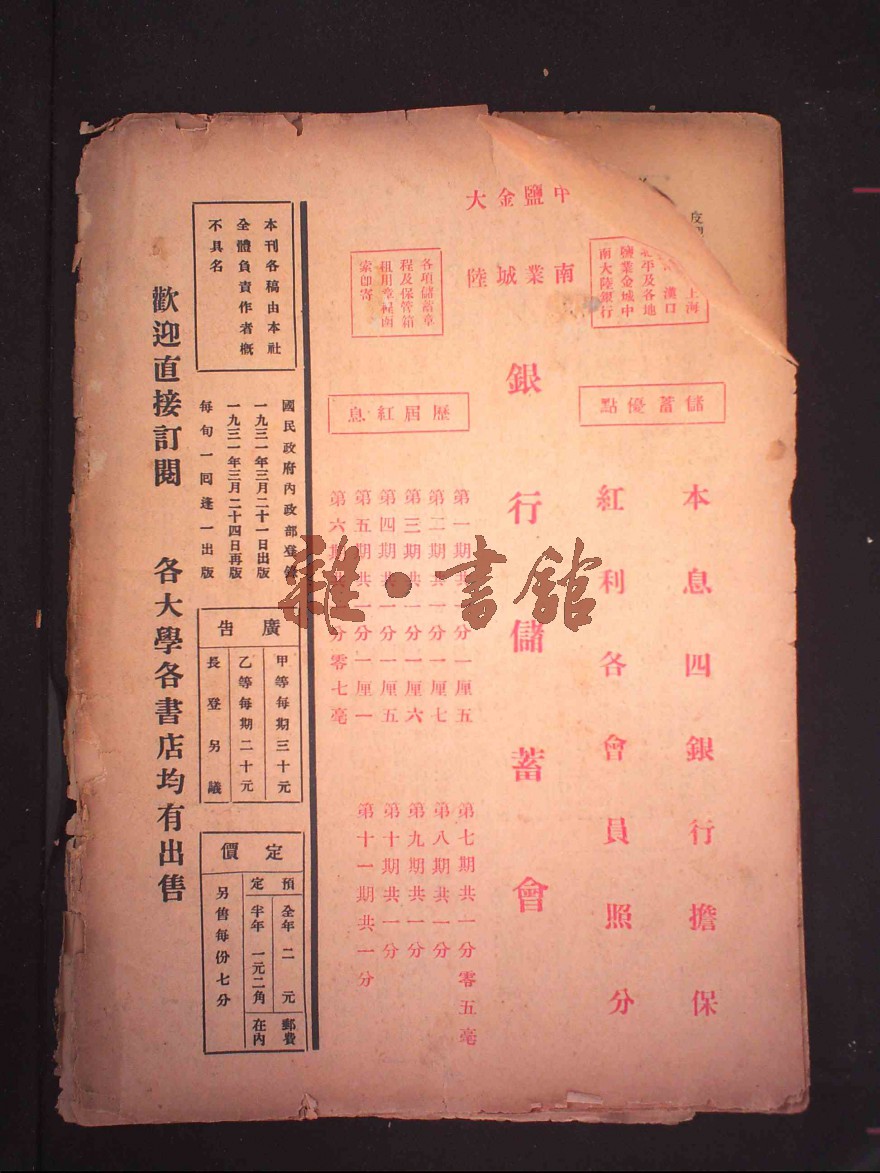 度
上海
漢口
北平及各地
鹽業金城中
南大陸銀行
儲蓄優點
本息四銀行擔保
紅利各會員照分
中南
鹽業
金城
大陸
銀行儲蓄會
各項儲蓄章
程及保管箱
租用章程函
索即寄
歷屆紅息
第一期共一分一厘五
第二期共一分一厘七
第三期共一分一厘六
第四期共一分一厘五
第五期共一分一厘一
第六期共一分零七毫
第七期共一分零五毫
第八期共一分
第九期共一分
第十期共一分
第十一期共一分
本刊各稿由本社
全體負責作者概
不具名
國民政府內政部登記
一九三一年三月二十一日出版
一九三一年三月二十四日再版
每旬一回逢一出版
廣告
甲等每期三十元
乙等每期二十元
長登另議
定價
預定
全年二元
半年一元二角
郵費在內
另售每份七分
歡迎直接訂閱 各大學各書店均有出售
雜·書館